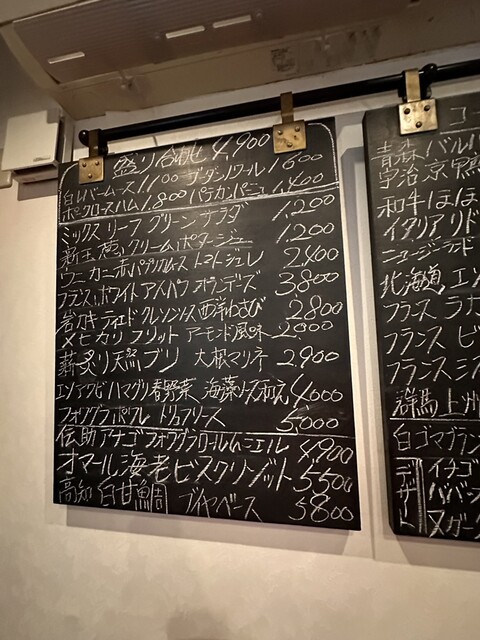 盛り合わせ 4,900
白レバームース 1100 ブーダンノワール 1600
ポークロースハム 1.800 パテカンパーニュ 1,400
ミックス リーフ グリーン サラダ 1,200
新玉葱のクリームポタージュ 1,200
ウニ カニ 赤パプリカムース トマトジュレ 2400
フランス ホワイトアスパラ オランデーズ 3800
岩カキ ティエド クレソンソース 西洋わさび 2800
メヒカリフリット アーモンド風味 2,000
薪炙り天然ブリ 大根マリネ 2,900
エゾアワビ ハマグリ 春野菜 海藻ソース和え 4,000
フォアグラポワレ トリュフソース 5,000
伝助アナゴ フォアグラロール ムニエル 4,900
オマール海老ビスクリゾット 5500
高知 白甘鯛 ブイヤベース 5800
コー
青森 バルバ
宇治 京鴨
和牛ほほ
イタリア リド
ニュージーランド
北海道 エゾ
フランス ラカ
フランス ピ
フランス シス
群馬 上州
白ゴマブラン
デザート
イチゴ
ババ
ヌガー